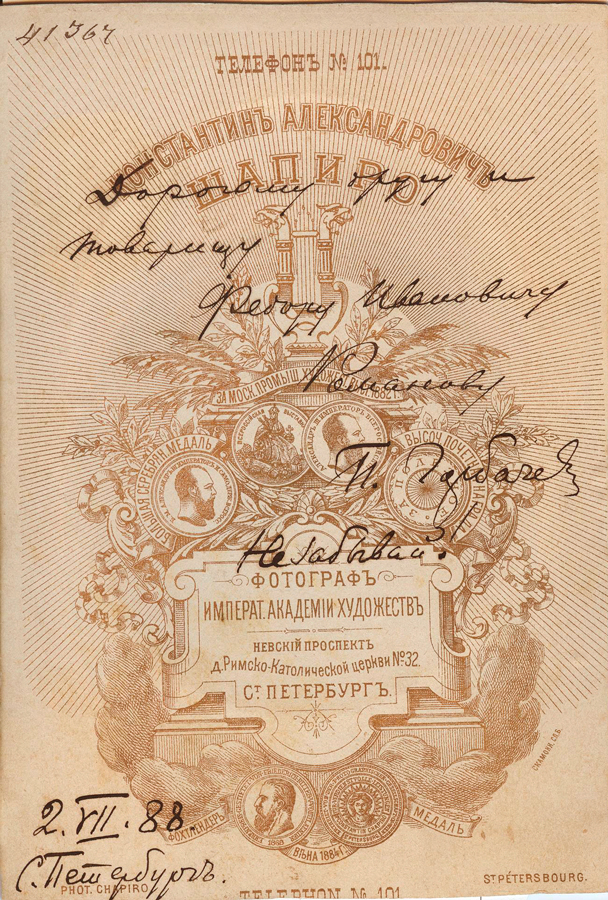 41367
ТЕЛЕФОНЪ № 101.
КОНСТАНТИНЪ АЛЕКСАНДРОВИЧЪ
ШАПИРО
Дорогому другу и
товарищу
Федору Ивановичу
Романову
ЗА МОСК. ПРОМЫШ. ХУДОЖ. 1882 г.
БОЛЬШАЯ СЕРЕБРЯН. МЕДАЛЬ
ВЫСОЧ. ПОЧЕТН. НАГРАД
П. Горбачев
Не забывай!
ФОТОГРАФЪ
ИМПЕРАТ. АКАДЕМІИ ХУДОЖЕСТВЪ
НЕВСКІЙ ПРОСПЕКТЪ
д. Римско-Католической церкви № 32.
Ст ПЕТЕРБУРГЪ.
ФОХТЛЕНДЕРЪ
МЕДАЛЬ
ВѢНА 1884 г.
2. VII. 88.
С. Петербургъ.
PHOT. CHAPIRO
ST PÉTERSBOURG.
TELEPHON № 101